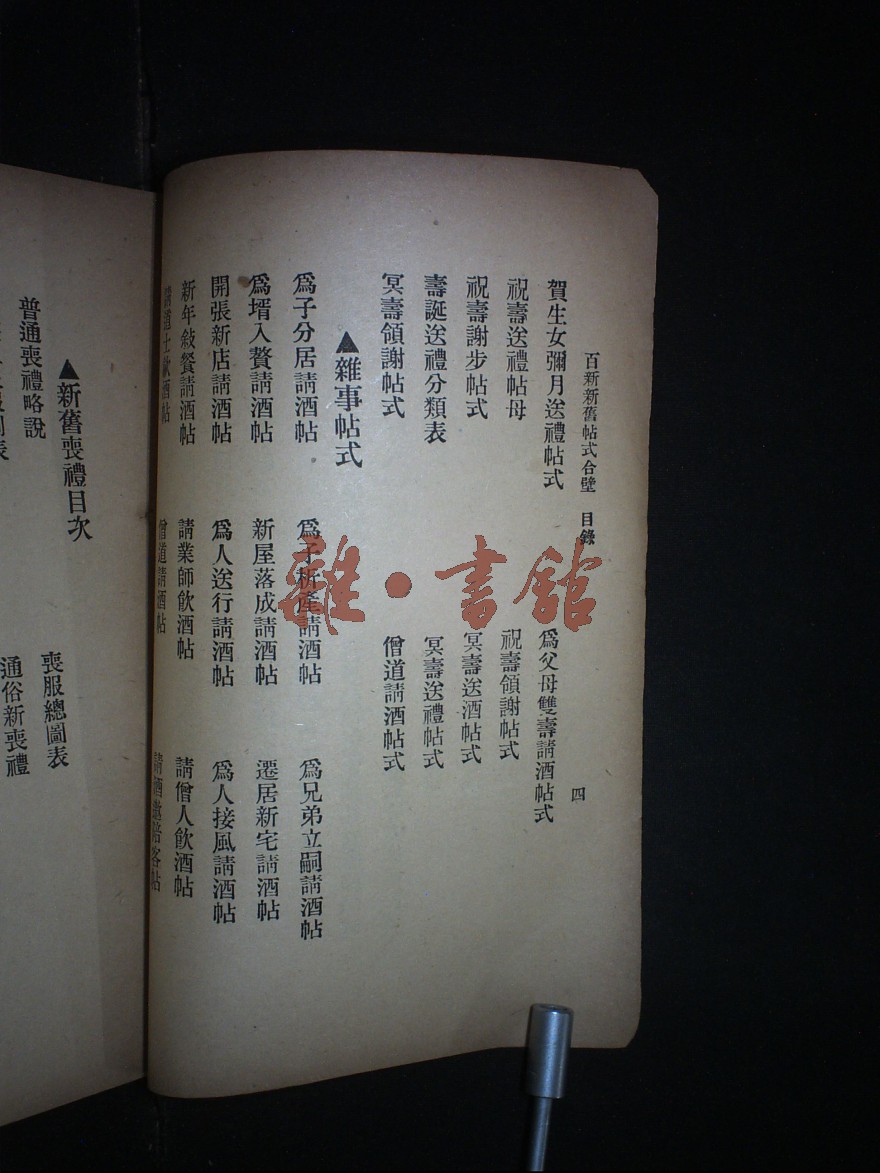 百新新舊帖式合璧 目錄 四
賀生女彌月送禮帖式 為父母雙壽請酒帖式
祝壽送禮帖母 祝壽領謝帖式
祝壽謝步帖式 冥壽送酒帖式
壽誕送禮分類表 冥壽送禮帖式
冥壽領謝帖式 僧道請酒帖式
▲雜事帖式
為子分居請酒帖 為子析產請酒帖 為兄弟立嗣請酒帖
為壻入贅請酒帖 新屋落成請酒帖 遷居新宅請酒帖
開張新店請酒帖 為人送行請酒帖 為人接風請酒帖
新年敍餐請酒帖 請業師飲酒帖 請僧人飲酒帖
請道士飲酒帖 僧道請酒帖 請酒邀陪客帖
▲新舊喪禮目次
普通喪禮略說 喪服總圖表
制表 通俗新喪禮
雜·書館